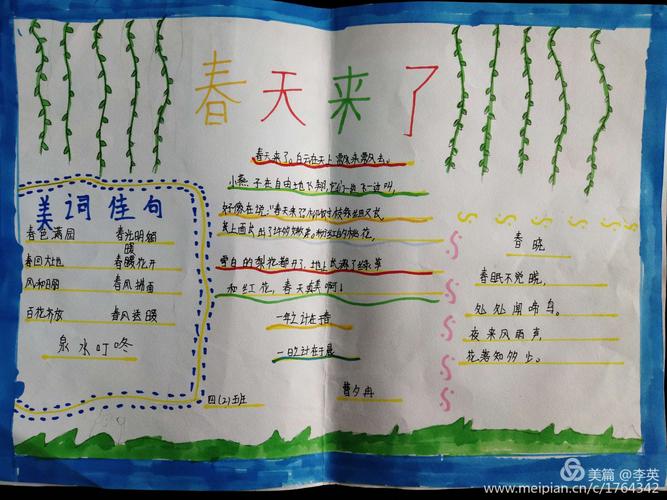 春天来了
美词佳句
春色满园 春光明媚
暖
春回大地 春暖花开
风和日丽 春风拂面
百花齐放 春风送暖
泉水叮咚
春天来了。白云在天上飘来飘去。
小燕子在自由地飞翔,它们一边飞一边叫,
好像在说:"春天来了
雪白的梨花都开了,地上长满了绿草
和红花,春天真美啊!
一年之计在于春
一日之计在于晨
四(2)班
曹夕冉
春晓
春眠不觉晓,
处处闻啼鸟。
夜来风雨声,
花落知多少。
美篇 @李英
www.meipian.cn/c/1764342